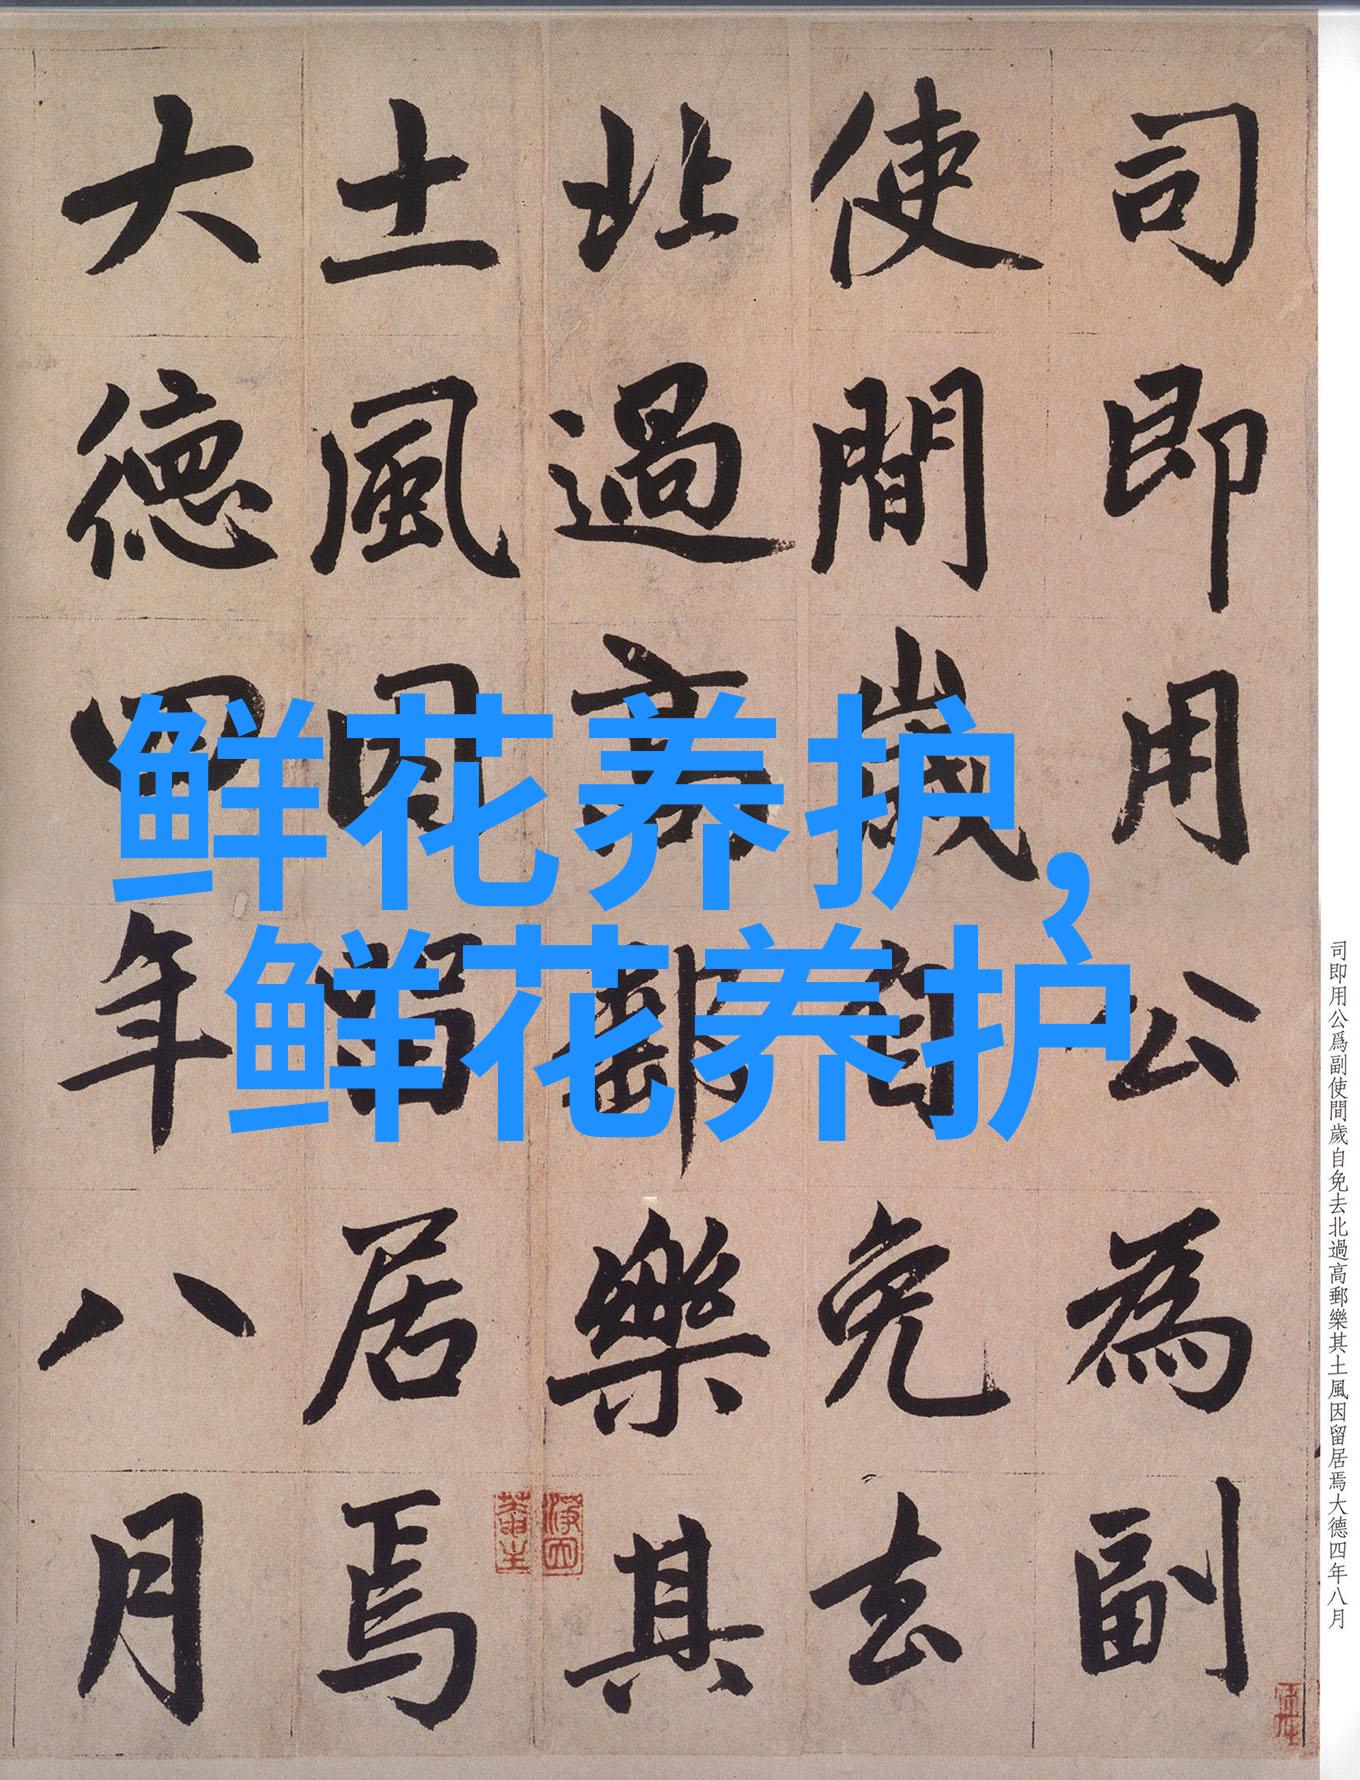 司即用公為副
使間歲自免去
北過高郵樂其
土風因留居焉
大德四年八月
鲜花养护,
鲜花养护
司即用公爲副使間歲自免去北過高郵樂其土風因留居焉大德四年八月